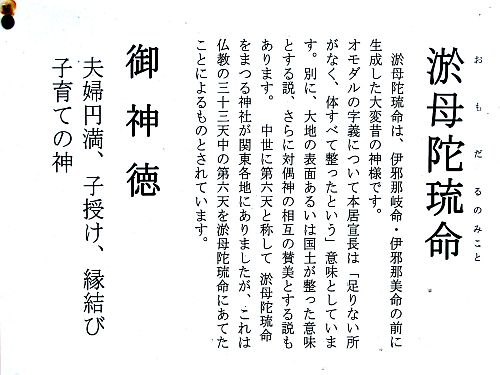 おもだるのみこと
淤母陀琉命
淤母陀琉命は、伊邪那岐命・伊邪那美命の前に
生成した大変昔の神様です。
オモダルの字義について本居宣長は「足りない所
がなく、体すべて整ったという」意味としていま
す。別に、大地の表面あるいは国土が整った意味
とする説、さらに対偶神の相互の賛美とする説も
あります。 中世に第六天と称して 淤母陀琉命
をまつる神社が関東各地にありましたが、これは
仏教の三十三天中の第六天を淤母陀琉命にあてた
ことによるものとされています。
御神徳
夫婦円満、子授け、縁結び
子育ての神